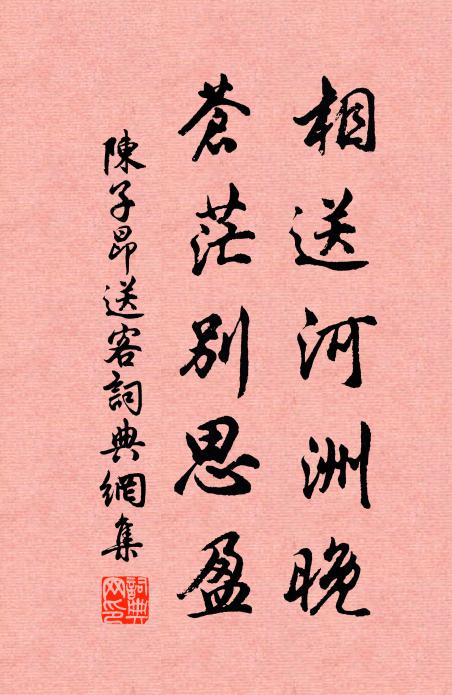 相送河洲晚
蒼茫別思盈
陳子昂送客詞典網集
詞典網印